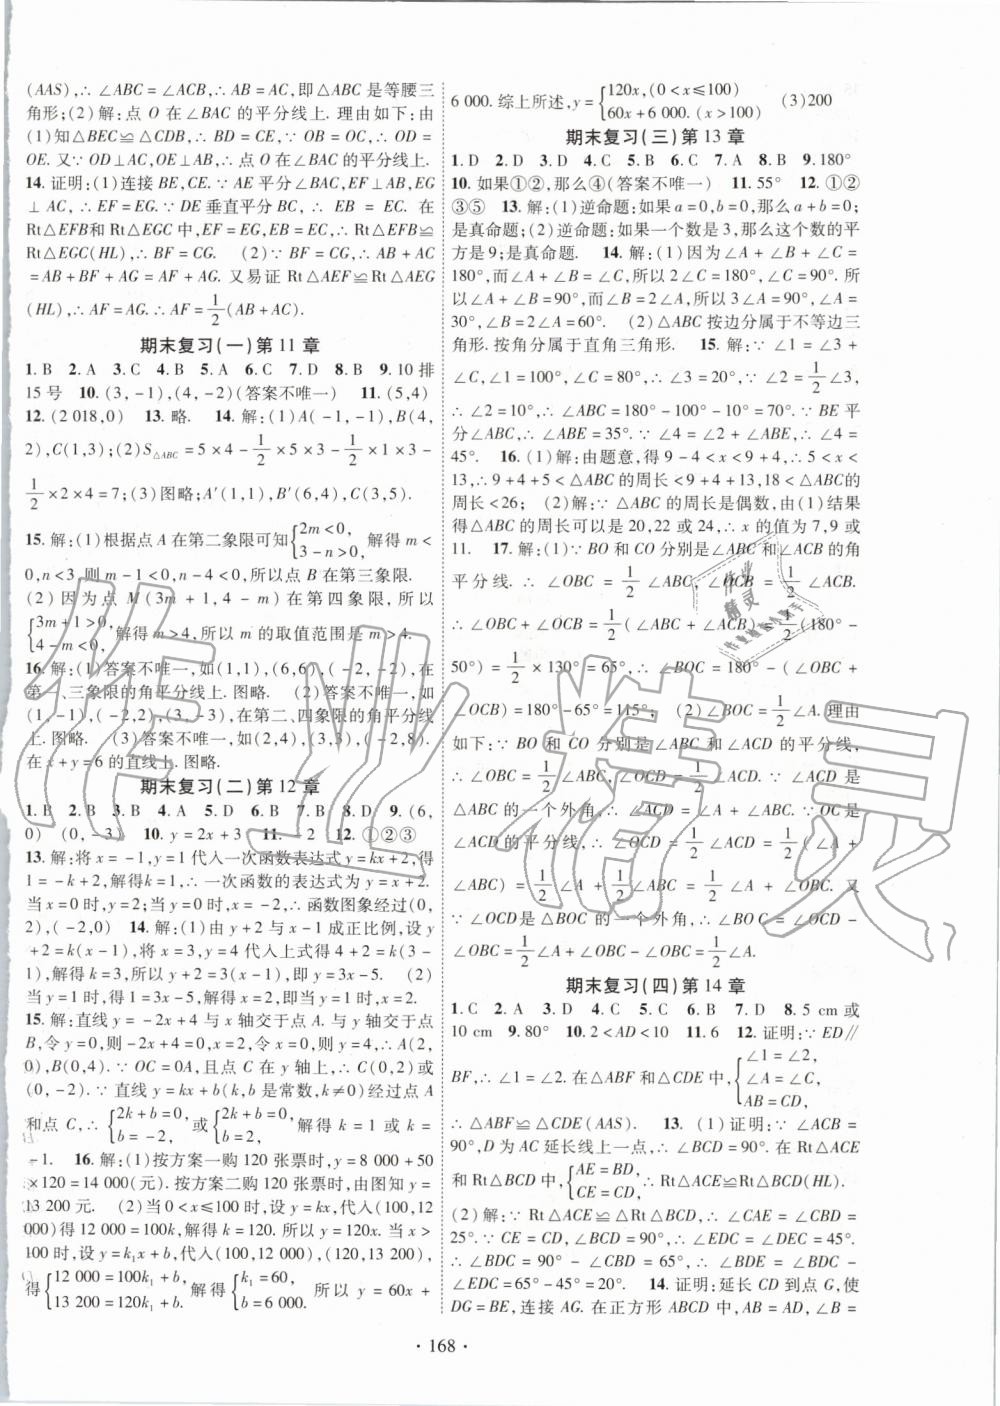 (AAS),∴ ∠ABC = ∠ACB,∴ AB = AC,即△ABC 是等腰三
角形;(2)解:点 O 在∠BAC 的平分线上. 理由如下:由
(1)知△BEC≌△CDB,∴ BD = CE. ∵ OB = OC,∴ OD =
OE. 又∵ OD⊥AC,OE⊥AB,∴ 点 O 在∠BAC 的平分线上.
14. 证明:(1)连接 BE,CE. ∵ AE 平分∠BAC,EF⊥AB,EG
⊥ AC,∴ EF = EG. ∵ DE 垂直平分 BC,∴ EB = EC. 在
Rt△EFB和 Rt△EGC 中,EF = EG,EB = EC,∴ Rt△EFB≌
Rt△EGC(HL),∴ BF = CG. (2)∵ BF = CG,∴ AB + AC
= AB + BF + AG = AF + AG. 又易证 Rt△AEF≌Rt△AEG
(HL),∴ AF = AG,∴ AF = 1/2(AB + AC).
期末复习(一)第 11 章
1. B 2. A 3. C 4. B 5. A 6. C 7. D 8. B 9. 10 排
15 号 10. (3,-1),(4,-2)(答案不唯一) 11. (5,4)
12. (2 018,0) 13. 略. 14. 解:(1)A(-1,-1),B(4,
2),C(1,3);(2)S△ABC = 5×4 - 1/2×5×3 - 1/2×1×3 -
1/2×2×4 = 7;(3)图略;A′(1,1),B′(6,4),C′(3,5).
15. 解:(1)根据点 A 在第二象限可知{2m<0, 3-n>0,解得 m<
0,n<3,则 m-1<0,n-4<0,所以点 B 在第三象限.
(2)因为点 M(3m+1,4-m)在第四象限,所以
{3m+1>0, 4-m<0,解得 m>4,所以 m 的取值范围是 m>4.
16. 解:(1)答案不唯一,如(1,1),(6,6),(-2,-2),在
第一、三象限的角平分线上. 图略. (2)答案不唯一,如
(1,-1),(-2,2),(3,-3),在第二、四象限的角平分线
上. 图略. (3)答案不唯一,如(2,4),(3,3),(-2,8).
在 x+y=6 的直线上. 图略.
期末复习(二)第 12 章
1. B 2. B 3. B 4. A 5. B 6. B 7. B 8. D 9. (6,
0) (0,-3) 10. y=2x+3 11. -2 12. ①②③
13. 解:将 x=-1,y=1 代入一次函数表达式 y=kx+2,得
1=-k+2,解得 k=1,∴ 一次函数的表达式为 y=x+2.
当 x=0 时,y=2;当 y=0 时,x=-2,∴ 函数图象经过(0,
2),(-2,0) 14. 解:(1)由 y+2 与 x-1 成正比例,设 y
+2=k(x-1),将 x=3,y=4 代入上式得 4+2=k(3-
1),解得 k=3,所以 y+2=3(x-1),即 y=3x-5. (2)
当 y=1 时,得 1=3x-5,解得 x=2,即当 y=1 时,x=2.
15. 解:直线 y=-2x+4 与 x 轴交于点 A. 与 y 轴交于点
B,令 y=0,则 -2x+4=0,x=2,令 x=0,则 y=4,∴ A(2,
0),B(0,4). ∵ OC=OA,且点 C 在 y 轴上,∴ C(0,2)或
(0,-2). ∵ 直线 y=kx+b(k,b 是常数,k≠0)经过点 A
和点 C,∴ {2k+b=0, b=-2,或{2k+b=0, b=2,解得 k=1 或 k=
-1. 16. 解:(1)按方案一购 120 张票时,y=8 000+50
×120=14 000(元). 按方案二购 120 张票时,由图知 y=
13 200 元. (2)当 0<x≤100 时,设 y=kx,代入(100,12
000)得 12 000=100k,解得 k=120. 所以 y=120x. 当 x>
100 时,设 y=k₁x+b,代入(100,12 000),(120,13 200),
得{12 000=100k₁+b, 13 200=120k₁+b.解得{k₁=60, b=6 000.所以 y=60x+
6 000. 综上所述,y={120x,(0<x≤100) 60x+6 000.(x>100) (3)200
期末复习(三)第 13 章
1. D 2. D 3. D 4. C 5. B 6. C 7. A 8. B 9. 180°
10. 如果①②,那么④(答案不唯一) 11. 55° 12. ①②
③⑤ 13. 解:(1)逆命题:如果 a=0,b=0,那么 a+b=0;
是真命题;(2)逆命题:如果一个数是 3,那么这个数的平
方是 9;是真命题. 14. 解:(1)因为∠A+∠B+∠C=
180°,而∠A+∠B=∠C,所以 2∠C=180°,∠C=90°. 所
以∠A+∠B=90°,而∠B=2∠A,所以 3∠A=90°,∠A=
30°,∠B=60°; (2)△ABC 按边分属于不等边三
角形. 按角分属于直角三角形. 15. 解:∵∠1=∠3+
∠C,∠1=100°,∠C=80°,∴ ∠3=20°. ∵∠2=1/2∠3,
∴ ∠2=10°,∴ ∠ABC=180°-100°-10°=70°. ∵ BE 平
分∠ABC,∴∠ABE=35°. ∵∠4=∠2+∠ABE,∴∠4=
45°. 16. (1)解:由题意,得 9-4<x<9+4,∴5<x<
13,∴9+4+5<△ABC 的周长<9+4+13,18<△ABC的
周长<26; (2)解:∵△ABC 的周长是偶数,由(1)结果
得△ABC 的周长可以是 20,22 或 24,∴ x 的值为 7,9 或
11. 17. 解:(1)∵ BO 和 CO 分别是∠ABC 和∠ACB 的角
平分线. ∴ ∠OBC = 1/2∠ABC,∠OCB = 1/2∠ACB.
∴ ∠OBC+∠OCB=1/2(∠ABC+∠ACB)=1/2(180°-
50°)=1/2×130°=65°,∴ ∠BOC=180°-(∠OBC+
∠OCB)=180°-65°=115°; (2)∠BOC=1/2∠A. 理由
如下:∵ BO 和 CO 分别是∠ABC 和∠ACD 的平分线,
∴ ∠OBC=1/2∠ABC,∠OCD=1/2∠ACD. ∵∠ACD 是
△ABC 的一个外角,∴ ∠ACD=∠A+∠ABC. ∵OC是
∠ACD 的平分线,∴ ∠OCD=1/2∠ACD=1/2(∠A+
∠ABC)=1/2∠A+1/2∠ABC=1/2∠A+∠OBC. 又
∵ ∠OCD是△BOC 的一个外角,∴ ∠BOC=∠OCD-
∠OBC=1/2∠A+∠OBC-∠OBC=1/2∠A.
期末复习(四)第 14 章
1. C 2. A 3. D 4. C 5. C 6. B 7. D 8. 5 cm 或
10 cm 9. 80° 10. 2<AD<10 11. 6 12. 证明:∵ ED∥
BF,∴∠1=∠2. 在△ABF 和△CDE 中,{∠1=∠2, ∠A=∠C, AB=CD,
∴ △ABF≌△CDE(AAS). 13. (1)证明:∵ ∠ACB=
90°,D 为 AC 延长线上一点,∴∠BCD=90°. 在 Rt△ACE
和 Rt△BCD 中,{AE=BD, CE=CD,∴ Rt△ACE≌Rt△BCD(HL).
(2)解:∵ Rt△ACE≌△Rt△BCD,∴ ∠CAE=∠CBD=
25°. ∵ CE=DC,∠BCD=90°,∴ ∠EDC=∠DEC=45°.
∵ ∠BDC=90°-∠CBD=65°,∴ ∠BDE=∠BDC-
∠EDC=65°-45°=20°. 14. 证明:延长 CD 到点 G,使
DG=BE,连接 AG. 在正方形 ABCD 中,AB=AD,∠B=
· 168 ·
作业精灵
作业
精灵